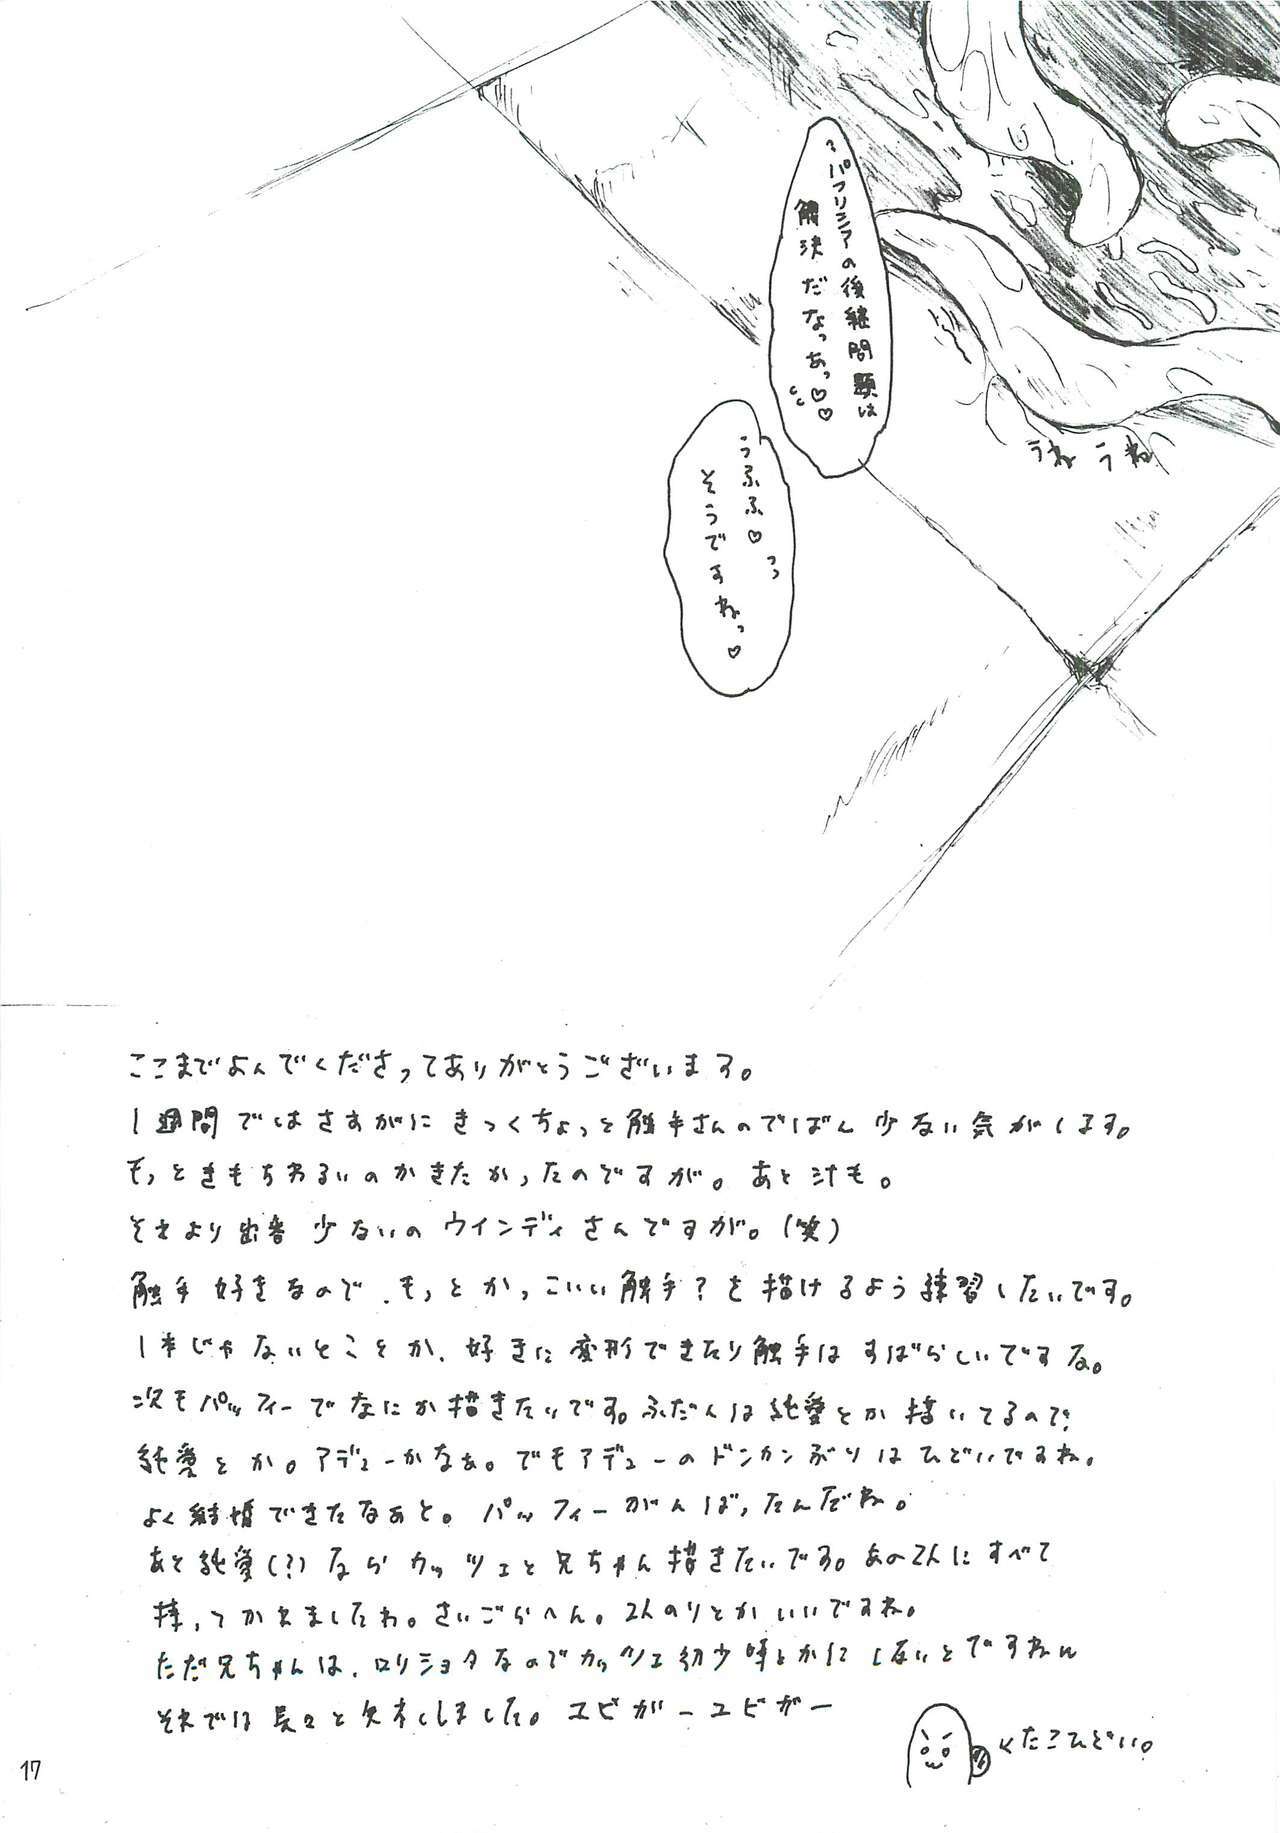 パフリシアの後継問題は
解決だなっあっ♡♡
うふふ♡
そうですねっ♡
うねうね
ここまでよんでくださってありがとうございます。
1週間ではさすがにきつくちょっと触手さんのでばん少ない気がします。
もっときもちわるいのかきたかったのですが。あと汁も。
それより出番少ないのウインディさんですが。(笑)
触手好きなので、もっとかっこいい触手?を描けるよう練習したいです。
1本じゃないとことか、好きに変形できたり触手はすばらしいですな。
次もパッフィーでなにか描きたいです。ふだんは純愛とか描いてるので
純愛とか。アデューかなぁ。でもアデューのドンカンぶりはひどいですね。
よく結婚できたなぁと。パッフィーがんばったんだね。
あと純愛(?)ならカッツェと兄ちゃん描きたいです。あの2人にすべて
持ってかれましたわ。さいごらへん。2人のりとかいいですね。
ただ兄ちゃんは、ロリショタなのでカッツェ幼少時とかにしないとですねん
それでは長々と失礼しました。ユビガーユビガー
<たこひどい。
17